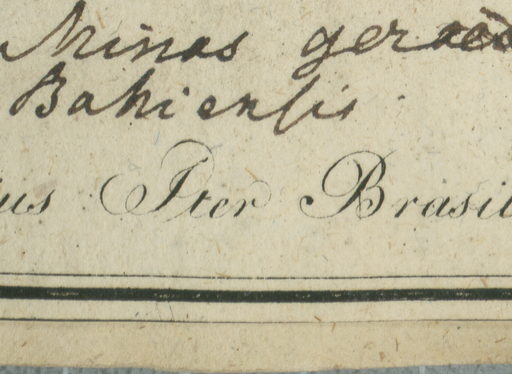 Minas geraës
Bahiensis
ius Iter Brasil